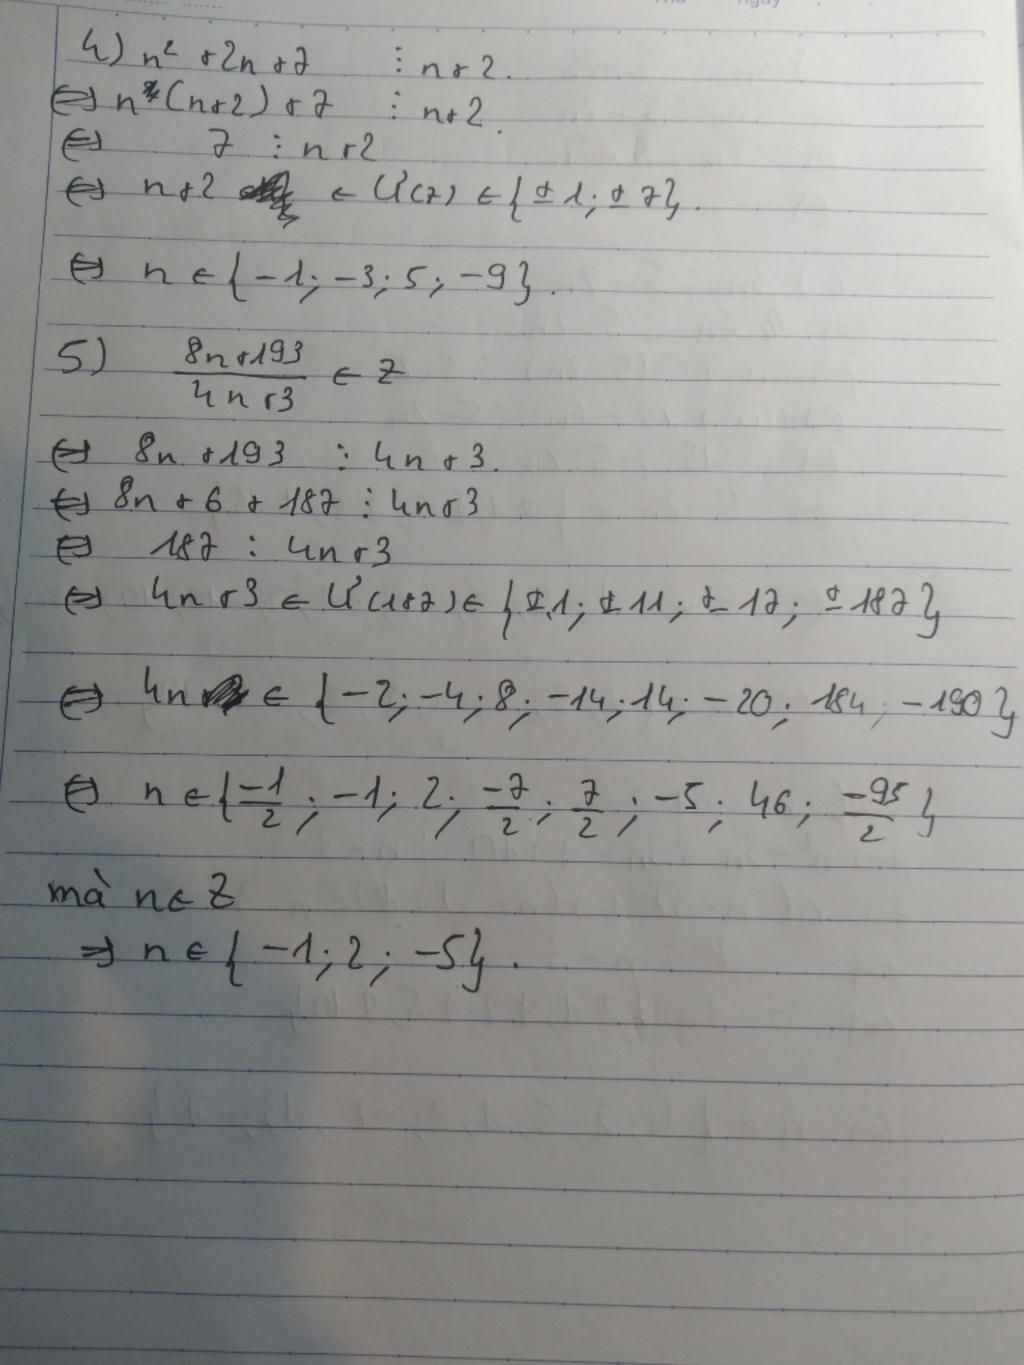 4) n² + 2n + 7 ⋮ n + 2.
⇔ n (n+2) + 7 ⋮ n+2.
⇔ 7 ⋮ n+2
⇔ n+2 ∈ Ư(7) ∈ {±1; ±7}.
⇔ n ∈ {-1; -3; 5; -9}.
5) (8n+193)/(4n+3) ∈ Z
⇔ 8n + 193 ⋮ 4n + 3.
⇔ 8n + 6 + 187 ⋮ 4n+3
⇔ 187 ⋮ 4n+3
⇔ 4n+3 ∈ Ư(187) ∈ {±1; ±11; ±17; ±187}
⇔ 4n ∈ {-2; -4; 8; -14; 14; -20; 184; -190}
⇔ n ∈ {-1/2; -1; 2; -7/2; 7/2; -5; 46; -95/2}
mà n ∈ Z
⇒ n ∈ {-1; 2; -5}.